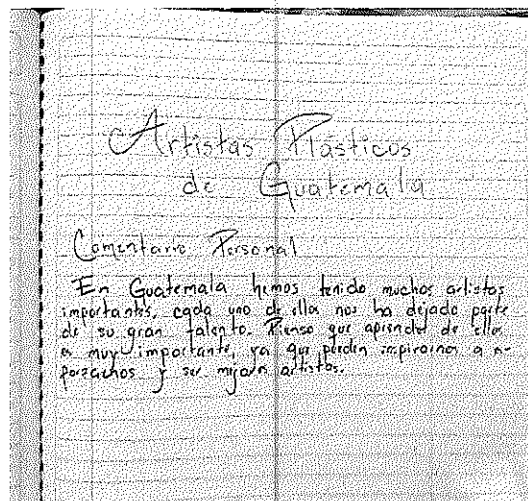 Artistas Plásticos
de Guatemala
Comentario Personal
En Guatemala hemos tenido muchos artistas
importantes, cada uno de ellos nos ha dejado parte
de su gran talento. Pienso que aprender de ellos
es muy importante, ya que pueden inspirarnos a
y ser mejores artistas.